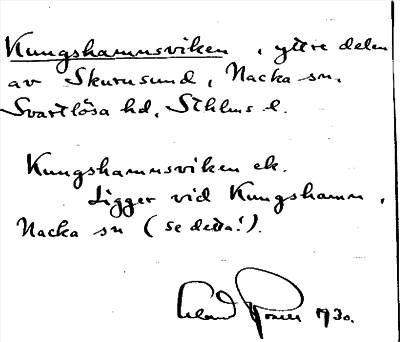 Kungshamnsviken, yttre delen
av Skurusund, Nacka sn,
Svartlösa hd, Sthlms l.
Kungshamnsviken ek.
Ligger vid Kungshamn,
Nacka sn (se detta!).
1930.